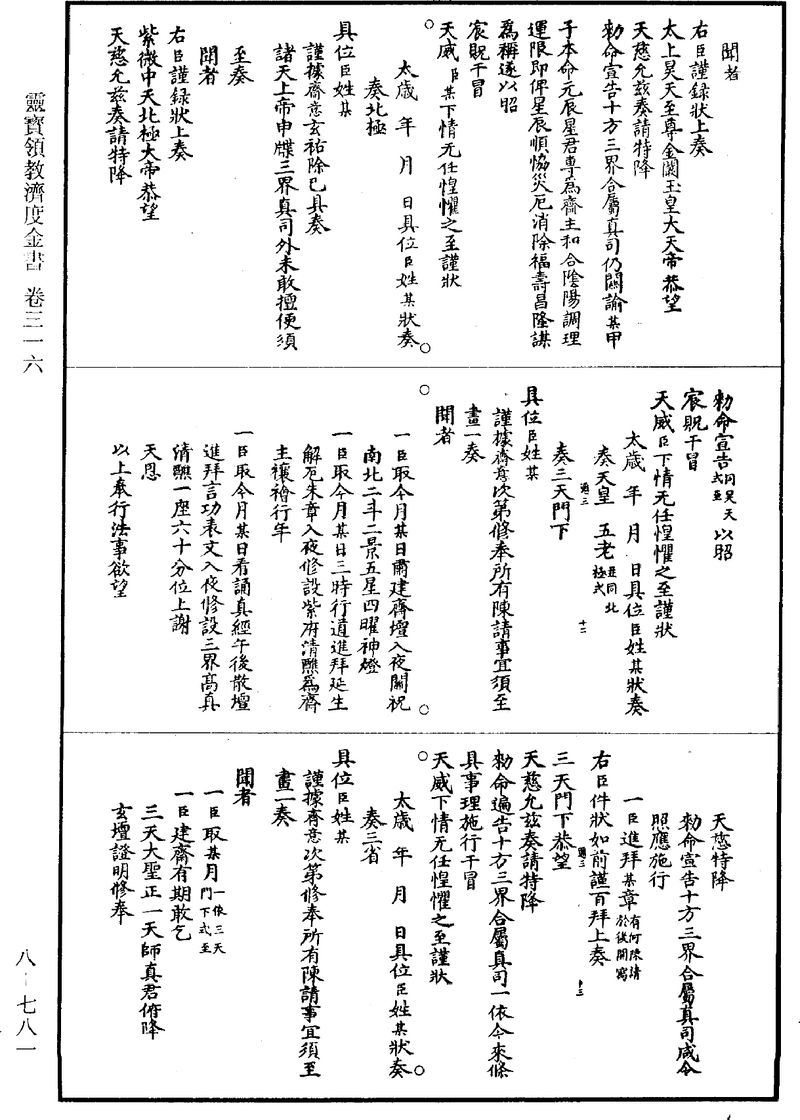 聞者
右臣謹録狀上奏
太上昊天至尊金闕玉皇大天帝恭望
天慈允兹奏請特降
勑命宣告十方三界合屬真司仍關諭某甲
子本命元辰星君專為齋主和合陰陽調理
運限即俾星辰順恊災厄消除福壽昌隆謀
為稱遂以昭
宸貺干冒
天威臣某下情无任惶懼之至謹狀
太歲年月日具位臣姓某狀奏
奏北極
具位臣姓某
謹據齋意玄祐除已具奏
諸天上帝申牒三界真司外未敢擅便須
至奏
聞者
右臣謹録狀上奏
紫微中天北極大帝恭望
天慈允兹奏請特降
勑命宣告同昊天式至以昭
宸貺干冒
天威臣下情无任惶懼之至謹狀
太歲年月日具位臣姓某狀奏
奏天皇 五老並同北極式
奏三天門下
具位臣姓某
謹據齋意次第修奉所有陳請事宜須至
畫一奏
聞者
一臣取今月某日肅建齋壇入夜關祝
南北二斗二景五星四曜神燈
一臣取今月某日三時行道進拜延生
解厄朱章入夜修設紫府清醮為齋
主禳禬行年
一臣取今月某日看誦真經午後散壇
進拜言功表文入夜修設三界高真
清醮一座六十分位上謝
天恩
以上奉行法事欲望
天慈特降
勑命宣告十方三界合屬真司咸令
照應施行
一臣進拜某章有何陳請於後開寫
右臣件狀如前謹百拜上奏
三天門下恭望
天慈允兹奏請特降
勑命遍告十方三界合屬真司一依今來條
具事理施行干冒
天威下情无任惶懼之至謹狀
太歲年月日具位臣姓某狀奏
奏三省
具位臣姓某
謹據齋意次第修奉所有陳請事宜須至
畫一奏
聞者
一臣取某月一依三天門下式至
一臣建齋有期敢乞
三天大聖正一天師真君俯降
玄壇證明修奉
靈寶領教濟度金書 卷三一六
八-七八一